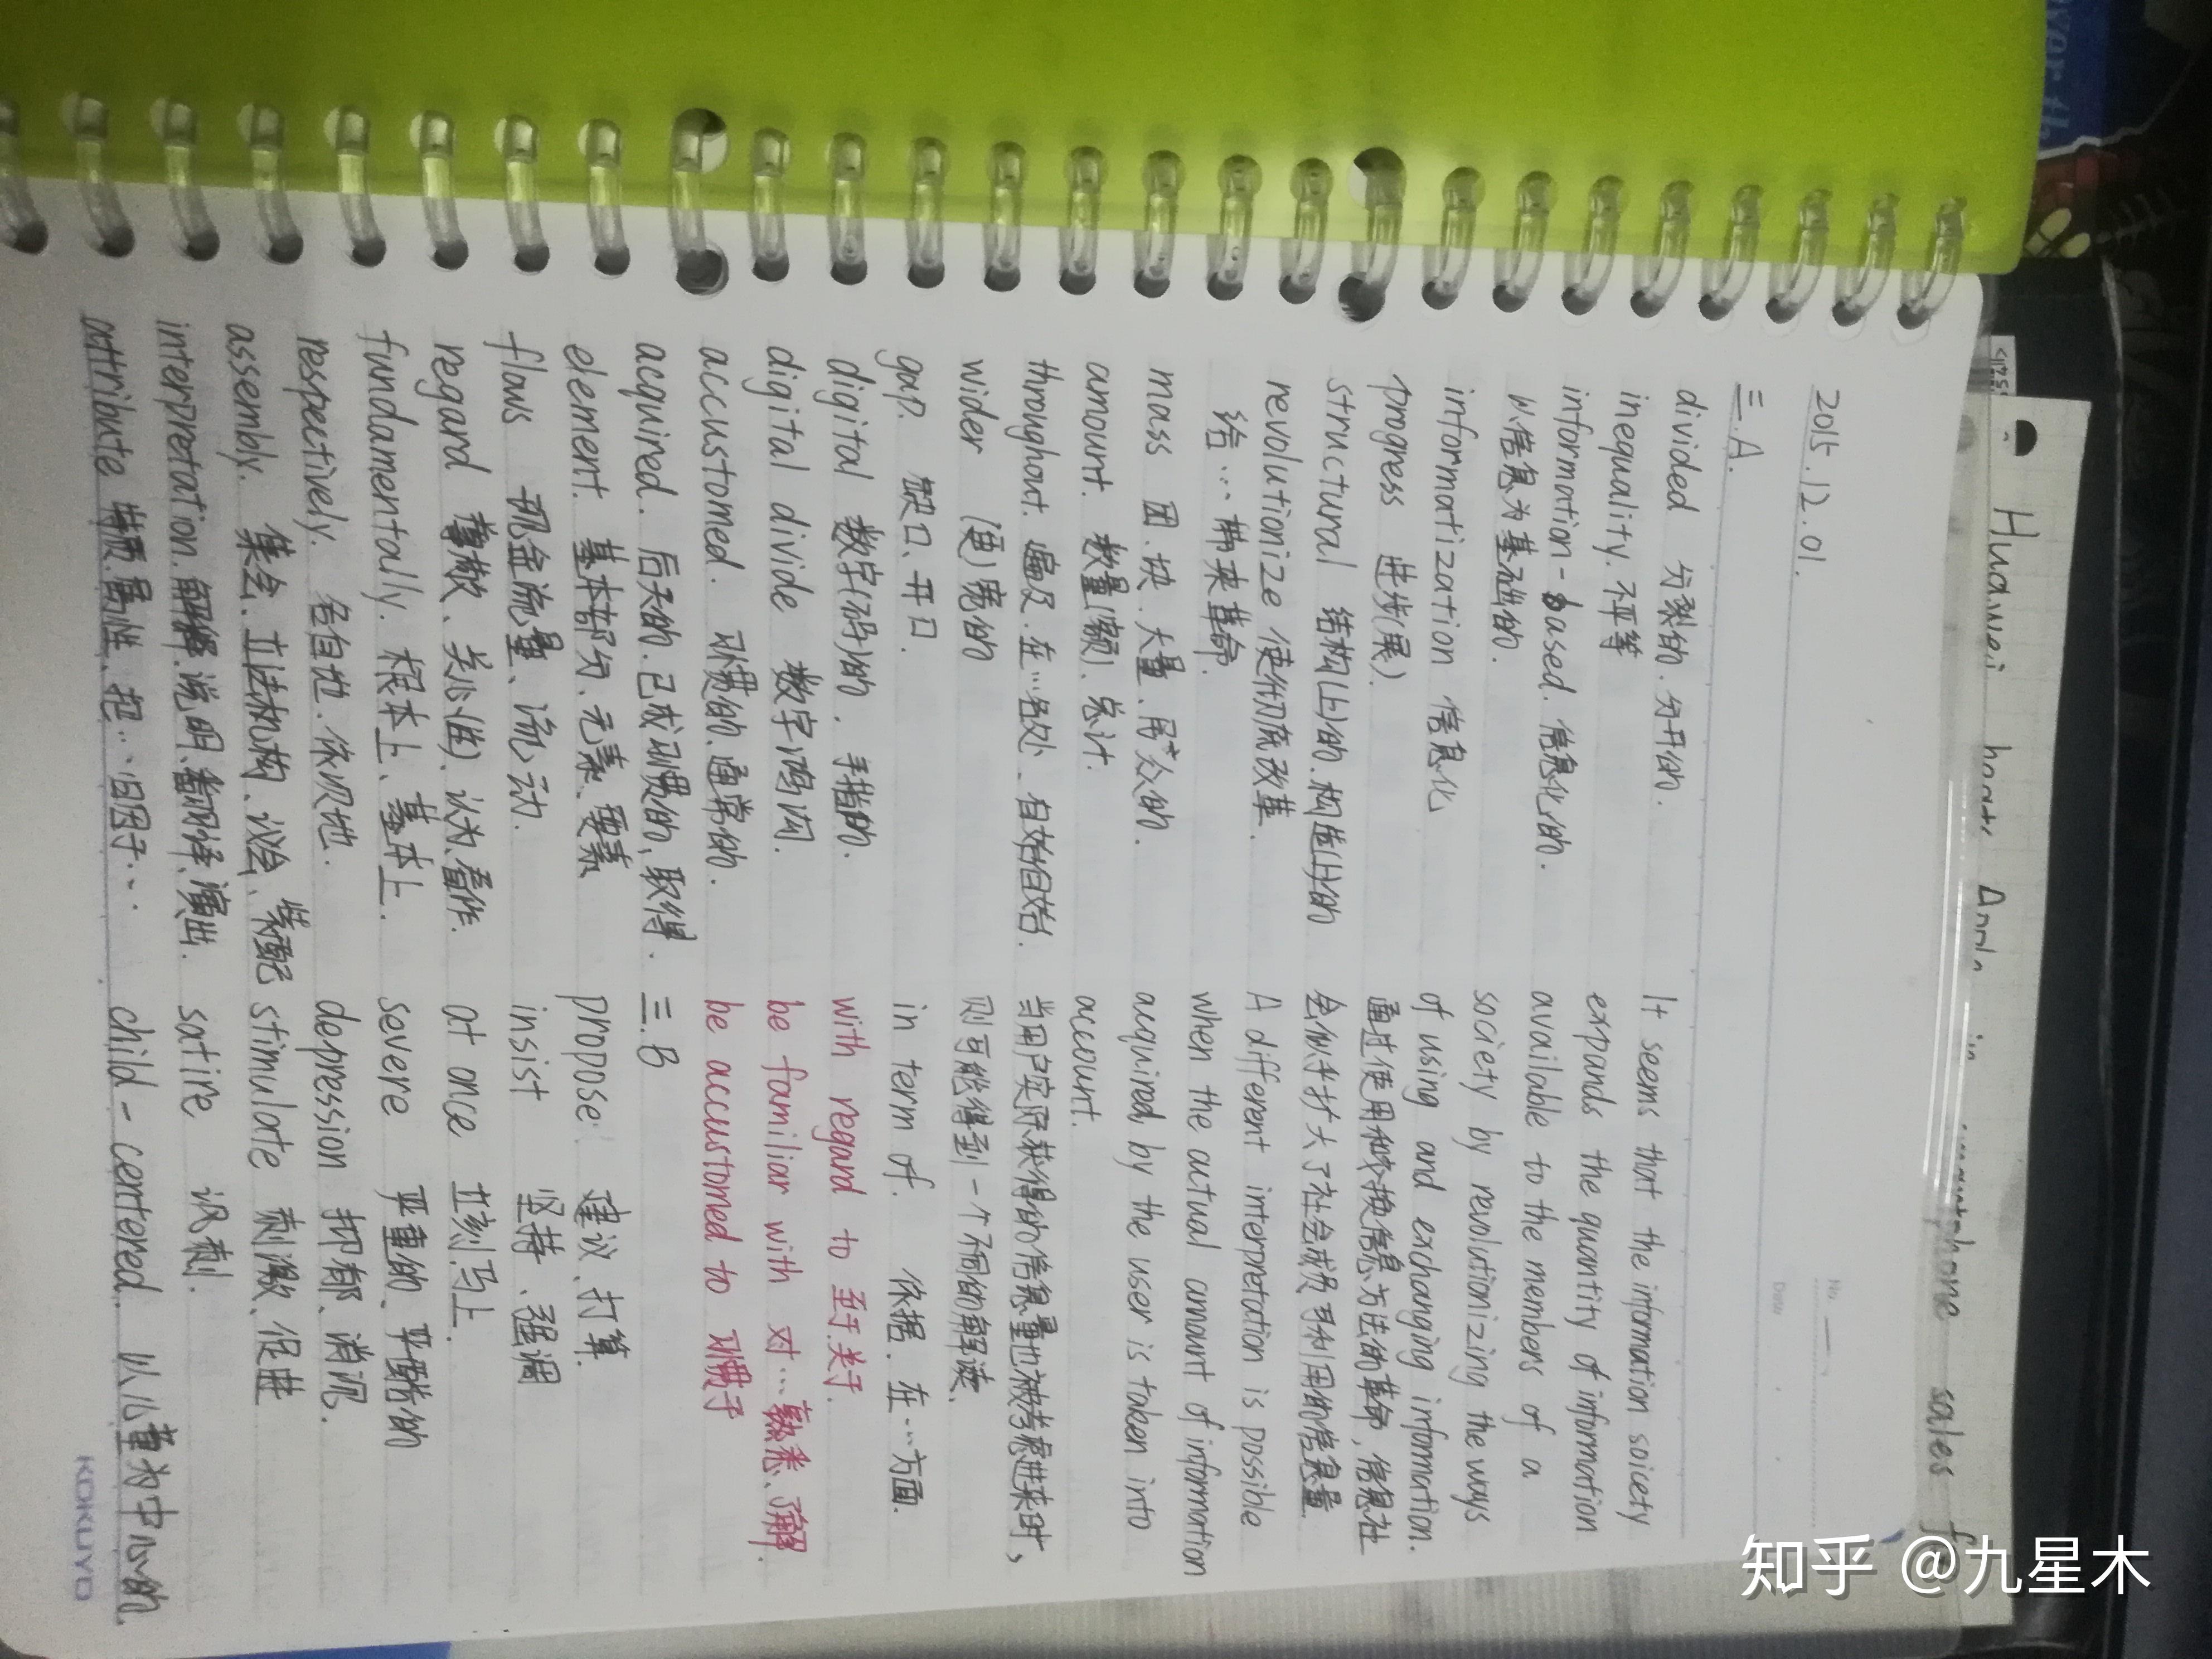 Huawei beats Apple in smartphone sales f
No.
Date
2015.12.01.
三.A.
divided 分裂的.分开的.
inequality.不平等
information-based.信息化的.
以信息为基础的.
informatization 信息化
progress 进步(展).
structural 结构(上)的.构造(上)的
revolutionize 使彻底改革.
给…带来革命.
mass 团.块.大量.民众的.
amount.数量(额).总计.
throughout.遍及.在…各处.自始自始.
wider (更)宽的
gap. 缺口、开口.
digital 数字(码)的.手指的.
digital divide 数字鸿沟.
accustomed. 习惯的.通常的.
acquired. 后天的.已成习惯的、取得.
element. 基本部分.元素、要素
flows 现金流量、流动.
regard 尊敬、关心(值)、认为、看作.
fundamentally. 根本上、基本上.
respectively. 各自地.依次地.
assembly. 集会、立法机构、议会、装配
interpretation.解释.说明、口译、演出.
attribute 特质.属性、把…归因于…
It seems that the information soicety
expands the quantity of information
available to the members of a
society by revolutionizing the ways
of using and exchanging information.
通过使用和交换信息方法的革命,信息社
会似乎扩大了社会成员可利用的信息量
A different interpretation is possible
when the actual amount of information
acquired by the user is taken into
account.
当用户实际获得的信息量也被考虑进来时、
则可能得到一个不同的解读.
in term of. 依据.在…方面.
with regard to 至于关于.
be familiar with 对…熟悉、了解.
be accustomed to 习惯于
三.B
propose: 建议、打算.
insist 坚持、强调
at once 立刻.马上.
severe 严重的、严酷的
depression 抑郁、消沉.
stimulate 刺激、促进
satire 讽刺.
child-centered. 以儿童为中心的.
KOKUYO
知乎 @九星木